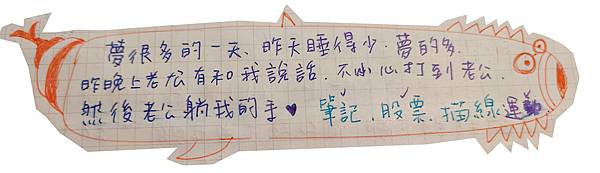 夢很多的一天、昨天睡得少.夢的多.
昨晚上老公有和我說話.不小心打到老公.
然後老公躺我的手♥ 筆記.股票.描線運動